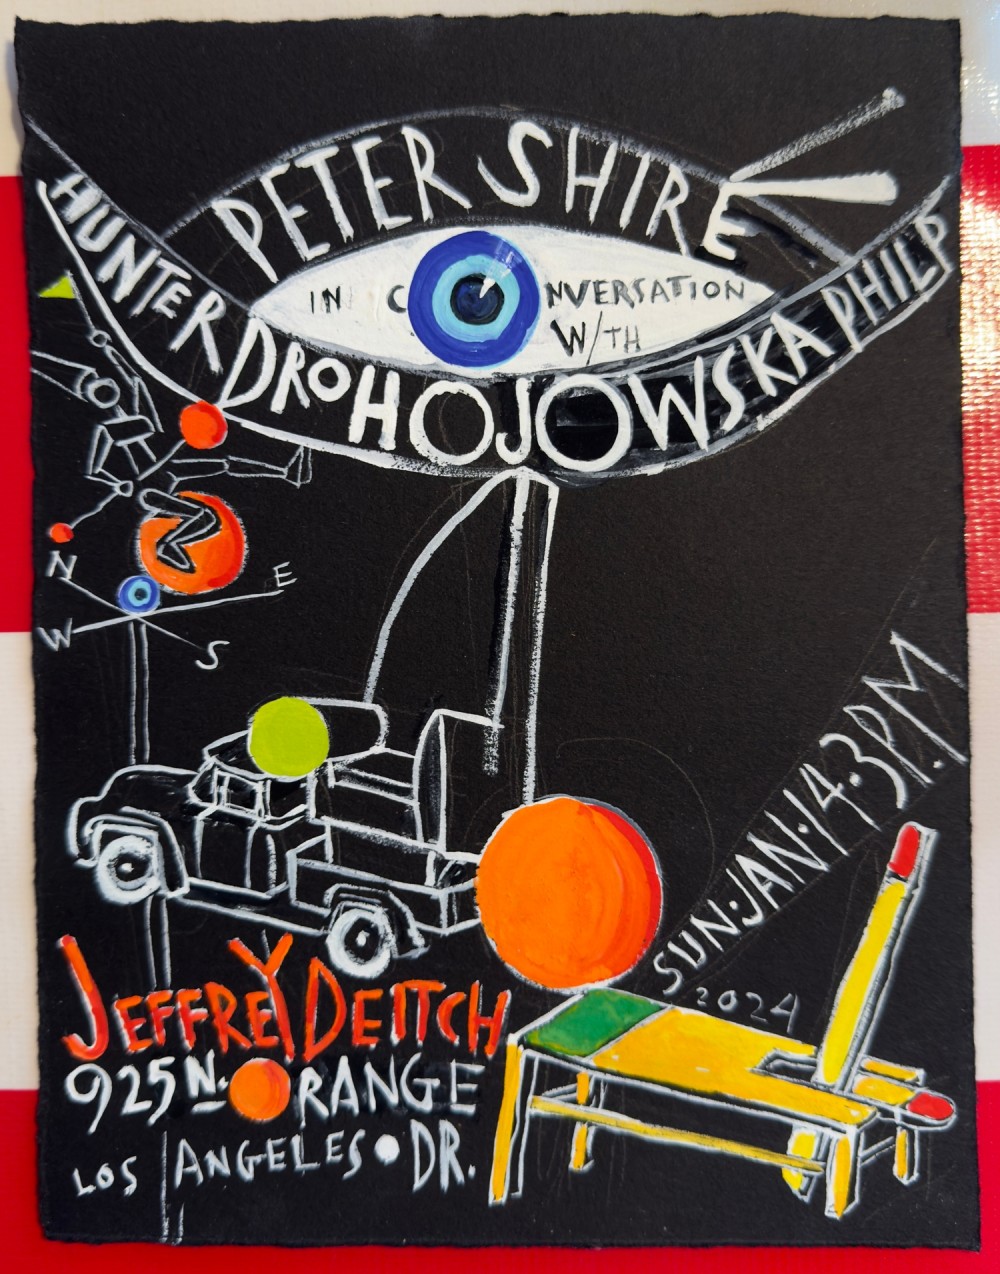 PETER SHIRE
IN CONVERSATION
W/TH
HUNTER DROHOJOWSKA PHILP
N
E
W
S
SUN·JAN·14·3P.M
2024
JEFFREY DEITCH
925 N. ORANGE
LOS ANGELES • DR.